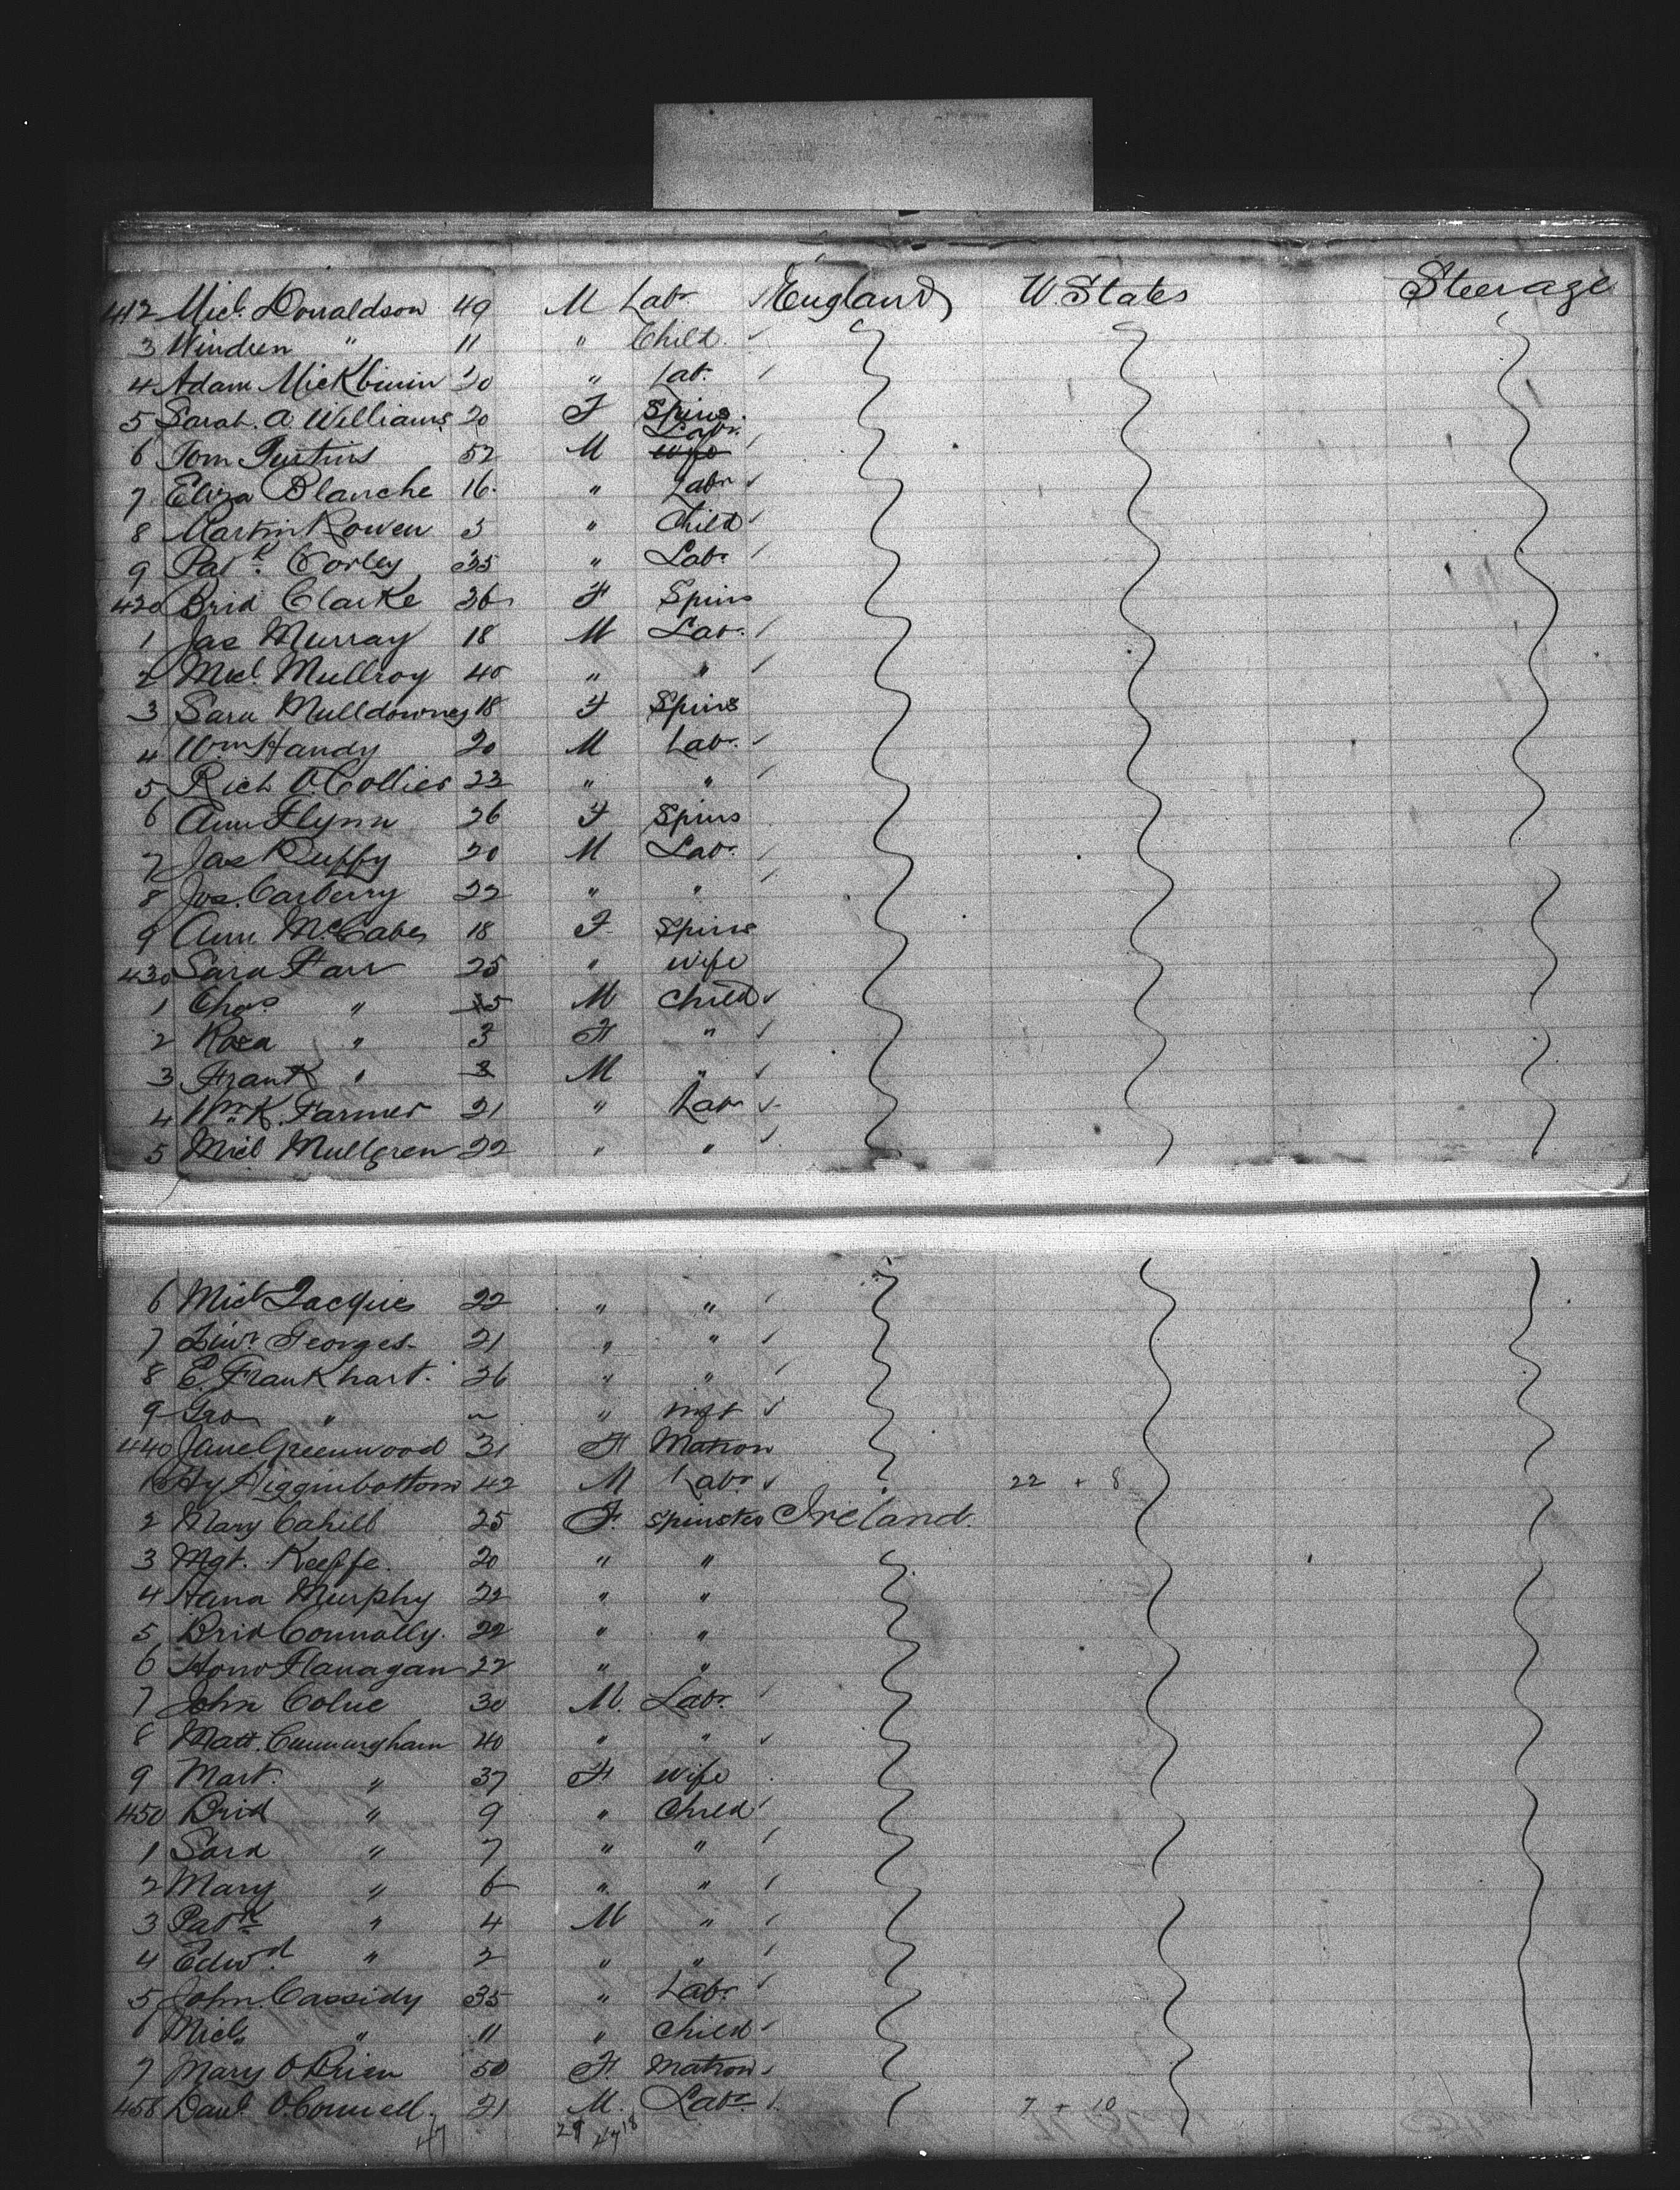 412 Micl. Donaldson 49 M Labr England U States Steerage
3 Windren " 11 " Child
4 Adam 20 " Lab.
5 Sarah. A Williams 20 F Spins.
6 Tom 52 M Labr. wife
7 Eliza Blanche 16. " Labr
8 Martin Rowen 3 " Child
9 Patk. Corley 35 " Labr
420 Brid Clarke 36 F Spins
1 Jas Murray 18 M Labr.
2 Micl. Mullroy 40 " "
3 Sara Mulldowney 18 F Spins
4 Wm Handy 20 M Labr.
5 Rich O. Collier 23 " "
6 Ann Flynn 26 F Spins
7 Jas Ruffy 20 M Labr.
8 Jos. Carberry 22 " "
9 Ann McCabe 18 F Spins
430 Sara Farr 25 " Wife
1 Chas " 5 M Child
2 Rosa " 3 F "
3 Frank " 3 M "
4 Wm K. Farmer 21 " Labr
5 Micl Mullgren 22 " "
6 Micl Jacques 22 " "
7 Georges 21 " "
8 E. Frankhart. 26 " "
9 Geo " " Inft
440 Jane Greenwood 31 F Matron
1 Hy Higginbottom 42 M Labr 22 + 8
2 Mary Cahill 25 F. Spinster Ireland.
3 Mgt. Keeffe. 20 " "
4 Hana Murphy 22 " "
5 Brid Connolly. 22 " "
6 Hono Flanagan 22 " "
7 John Colue 30 M. Labr.
8 Matt. Cunningham 40 " "
9 Mart. " 37 F Wife
450 Brid " 9 " Child
1 Sara " 7 " "
2 Mary " 6 " "
3 Patk " 4 M "
4 Edwd " 2 " "
5 John Cassidy 35 " Labr.
6 Micl. " 11 " Child
7 Mary O Brien 50 F Matron
458 Danl. O.Connell. 21 M. Labr. 7 + 10
47 29 47 18